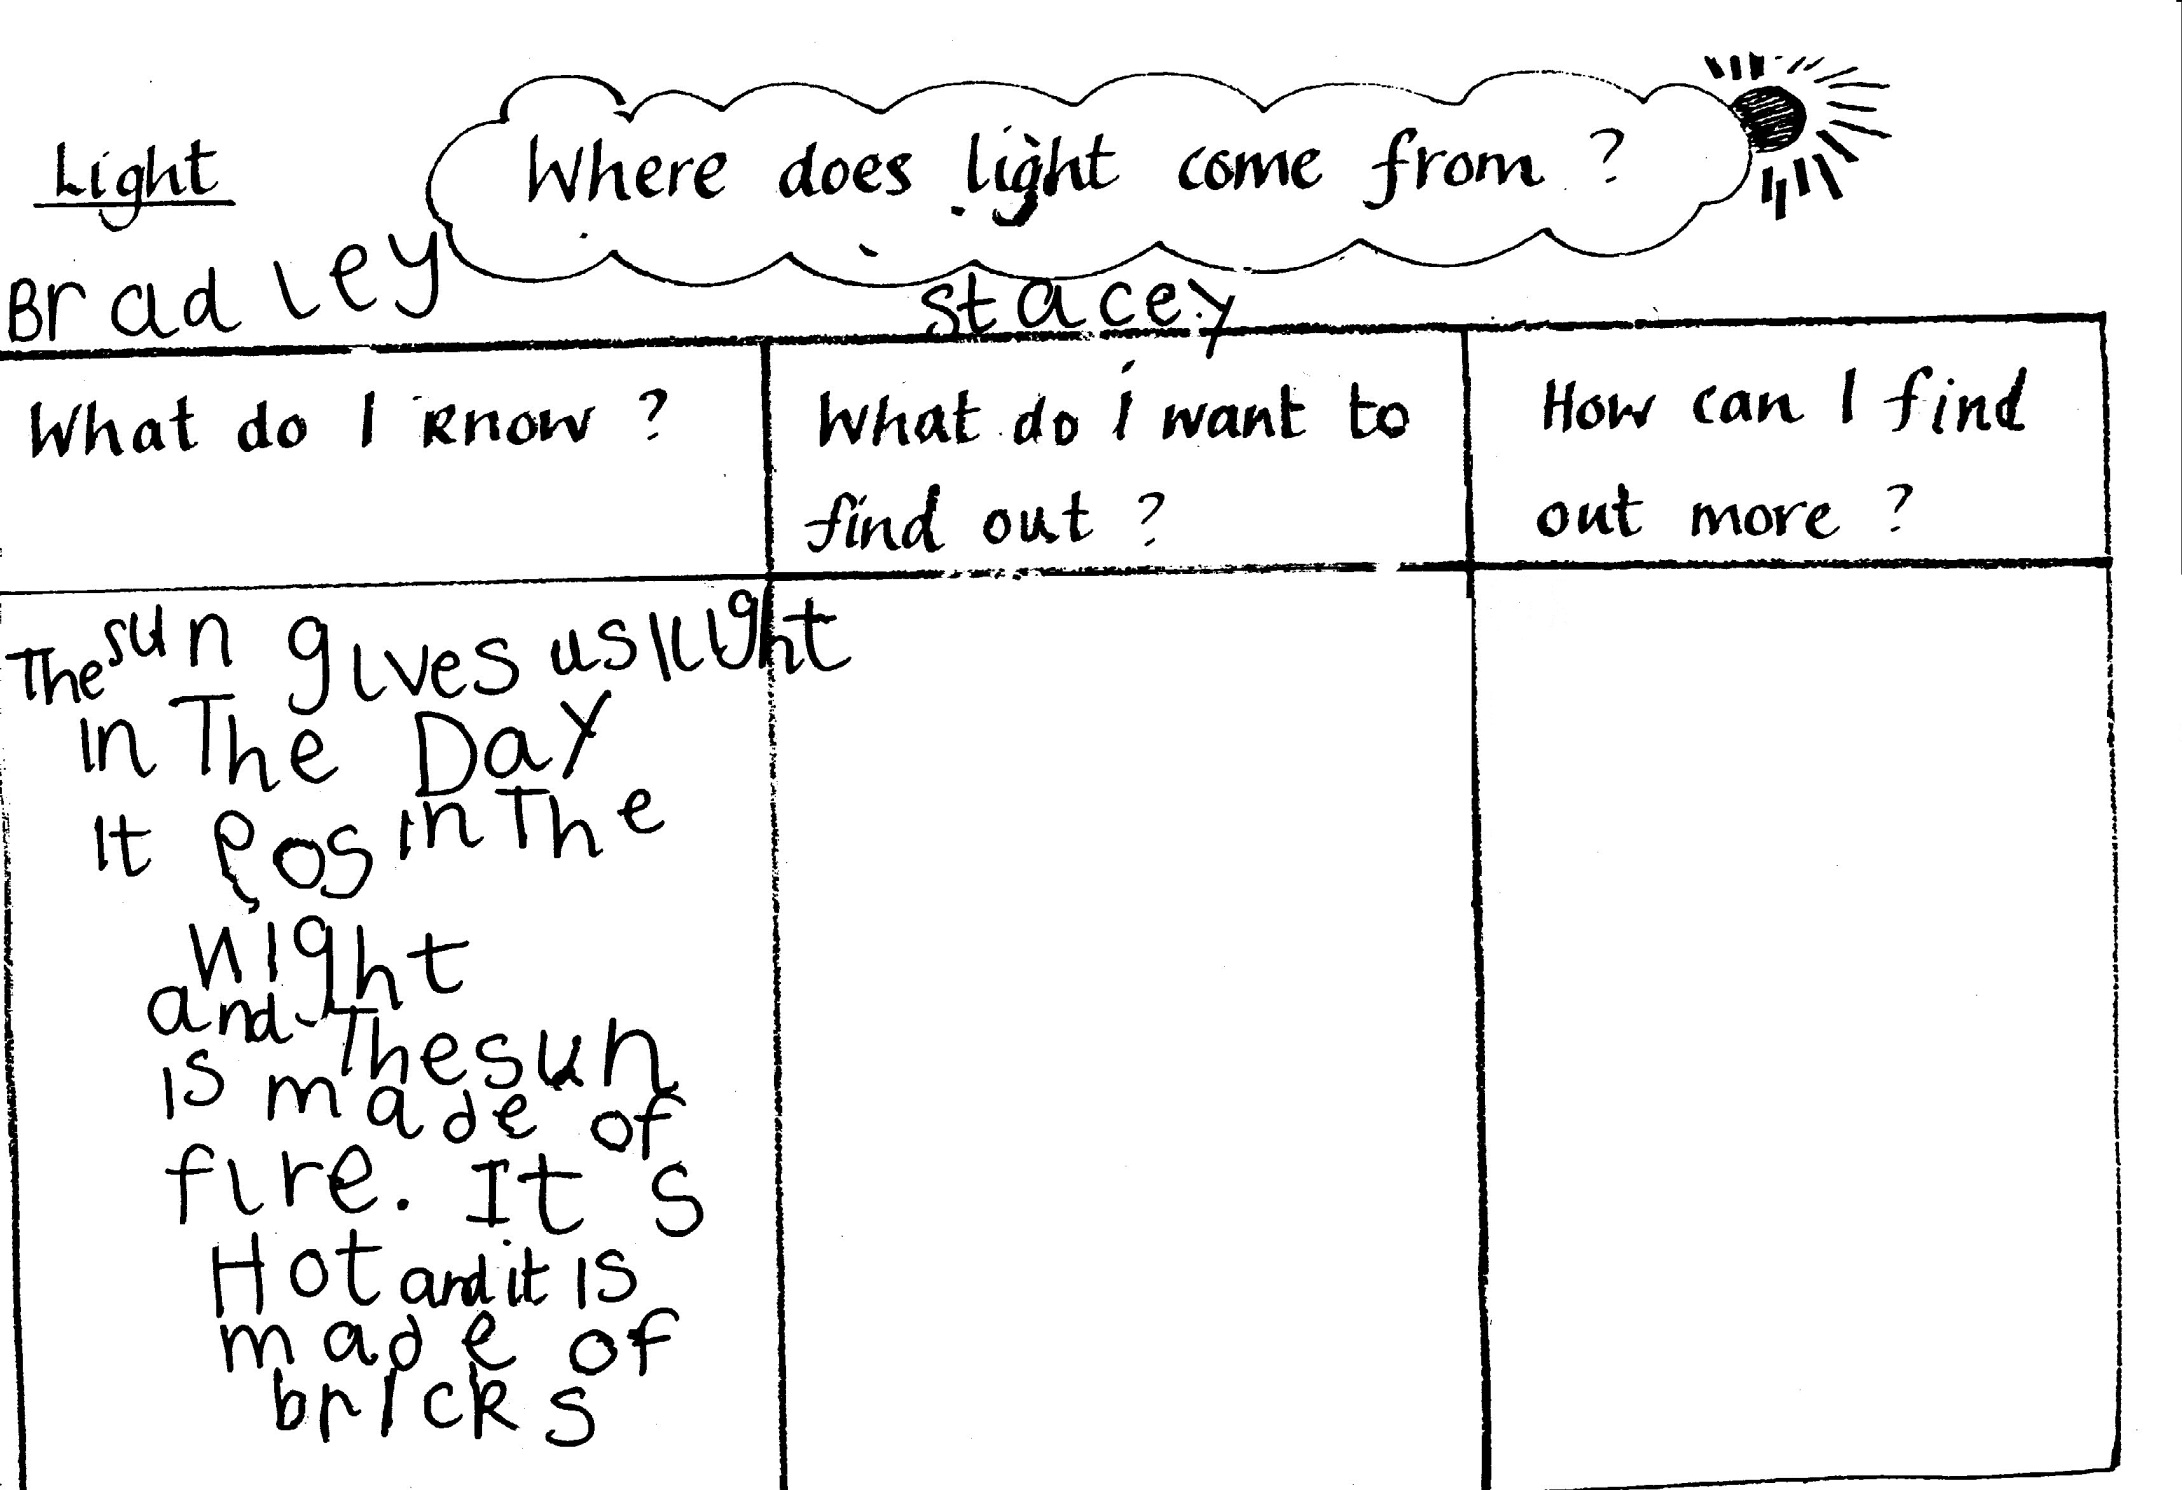 Light
Where does light come from ?
Bradley
Stacey
What do I know ?
What do I want to
find out ?
How can I find
out more ?
The sun gives us liight
in The Day
It gos in The
night
and The sun
is made of
fire. It s
Hot and it is
made of
bricks